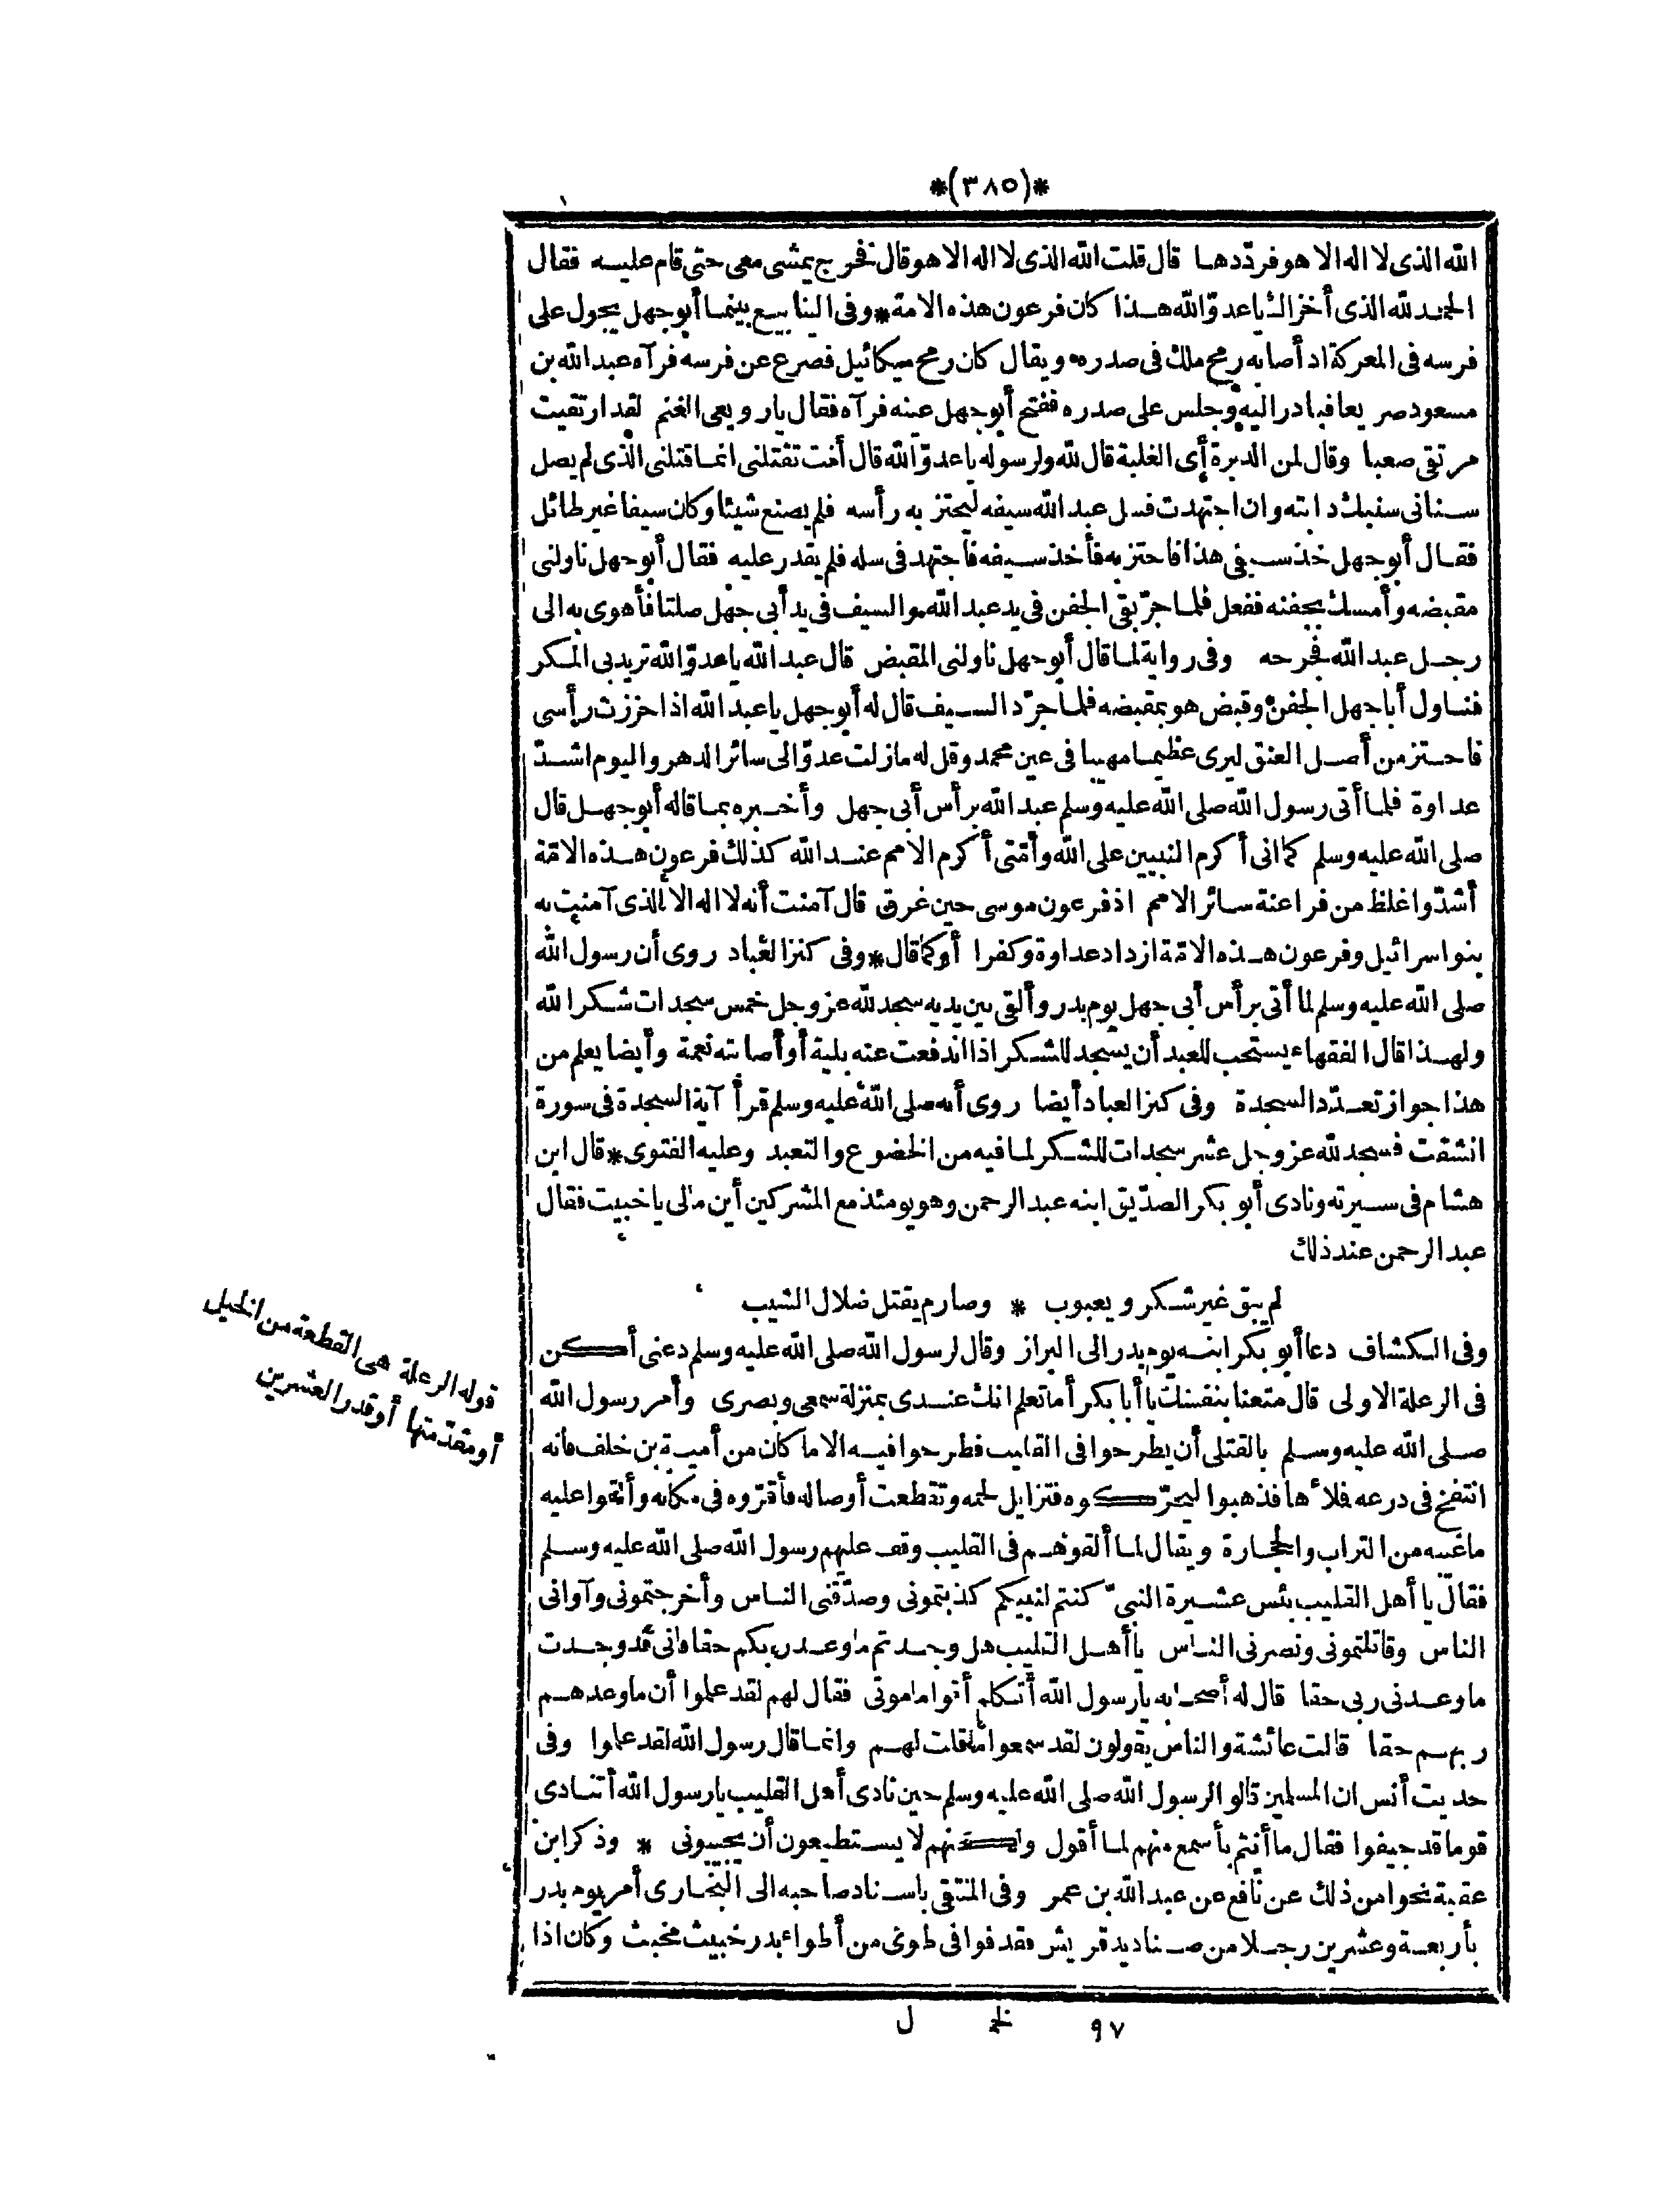 *(٣٨٥)*
الله الذى لا اله الا هو فردّدها قال قلت الله الذى لا اله الا هو قال فخرج يمشى معى حتى قام عليه فقال
الحمد لله الذى أخزاك يا عدوّ الله هذا كان فرعون هذه الامة * وفى الينابيع بينما أبو جهل يجول على
فرسه فى المعركة اذ أصابه رمح ملك فى صدره ويقال كان رمح ميكائيل فصرع عن فرسه فرآه عبد الله بن
مسعود صريعا فبادر اليه وجلس على صدره ففتح أبو جهل عينه فرآه فقال يا رويعى الغنم لقد ارتقيت
مرتقى صعبا وقال لمن الدبرة أى الغلبة قال لله ولرسوله يا عدوّ الله قال أنت تقتلنى انما قتلنى الذى لم يصل
سنانى سنبك دابته وان اجتهدت فسل عبد الله سيفه ليحتز به رأسه فلم يصنع شيئا وكان سيفا غير طائل
فقال أبو جهل خذ سيفى هذا فاحتز به فأخذ سيفه فاجتهد فى سله فلم يقدر عليه فقال أبو جهل ناولنى
مقبضه وأمسك بجفنه ففعل فلما جرّ بقى الجفن فى يد عبد الله والسيف فى يد أبى جهل صلتا فأهوى به الى
رجل عبد الله فجرحه وفى رواية لما قال أبو جهل ناولنى المقبض قال عبد الله يا عدوّ الله تريد بى المكر
فناول أبا جهل الجفن وقبض هو بمقبضه فلما جرّد السيف قال له أبو جهل يا عبد الله اذا حززت رأسى
فاحتز من أصل العنق ليرى عظيما مهيبا فى عين محمد وقل له ما زلت عدوّا الى سائر الدهر واليوم اشدّ
عداوة فلما أتى رسول الله صلى الله عليه وسلم عبد الله برأس أبى جهل وأخبره بما قاله أبو جهل قال
صلى الله عليه وسلم كما انى أكرم النبيين على الله وأمّتى أكرم الامم عند الله كذلك فرعون هذه الامّة
أشدّ واغلظ من فراعنة سائر الامم اذ فرعون موسى حين غرق قال آمنت أنه لا اله الا الذى آمنت به
بنو اسرائيل وفرعون هذه الامّة ازداد عداوة وكفرا أو كما قال * وفى كنز العباد روى أن رسول الله
صلى الله عليه وسلم لما أتى برأس أبى جهل يوم بدر وألقى بين يديه سجد لله عز وجل خمس سجدات شكرا لله
ولهذا قال الفقهاء يستحب للعبد أن يسجد للشكر اذا اندفعت عنه بلية أو أصابته نعمة وأيضا يعلم من
هذا جواز تعدّد السجدة وفى كنز العباد أيضا روى أنه صلى الله عليه وسلم قرأ آية السجدة فى سورة
انشقت فسجد لله عز وجل عشر سجدات للشكر لما فيه من الخضوع والتعبد وعليه الفتوى * قال ابن
هشام فى سيرته ونادى أبو بكر الصدّيق ابنه عبد الرحمن وهو يومئذ مع المشركين أين مالى يا خبيث فقال
عبد الرحمن عند ذلك
لم يبق غير شكر ويعبوب * وصارم يقتل ضلال الشيب
وفى الكشاف دعا أبو بكر ابنه يوم بدر الى البراز وقال لرسول الله صلى الله عليه وسلم دعنى أكن
فى الرعلة الاولى قال متعنا بنفسك يا أبا بكر أما تعلم انك عندى بمنزلة سمعى وبصرى وأمر رسول الله
صلى الله عليه وسلم بالقتلى أن يطرحوا فى القليب فطرحوا فيه الا ما كان من أمية بن خلف فانه
انتفخ فى درعه فملأها فذهبوا ليحرّكوه فتزايل لحمه وتقطعت أوصاله فأقرّوه فى مكانه وألقوا عليه
ما غيبه من التراب والحجارة ويقال لما ألقوهم فى القليب وقف عليهم رسول الله صلى الله عليه وسلم
فقال يا أهل القليب بئس عشيرة النبىّ كنتم لنبيكم كذبتمونى وصدّقنى الناس وأخرجتمونى وآوانى
الناس وقاتلتمونى ونصرنى الناس يا أهل القليب هل وجدتم ما وعد ربكم حقا فانى قد وجدت
ما وعدنى ربى حقا قال له أصحابه يا رسول الله أتكلم أقواما موتى فقال لهم لقد علموا أن ما وعدهم
ربهم حقا قالت عائشة والناس يقولون لقد سمعوا ما قلت لهم وانما قال رسول الله لقد علموا وفى
حديث أنس ان المسلمين قالوا لرسول الله صلى الله عليه وسلم حين نادى أهل القليب يا رسول الله أتنادى
قوما قد جيفوا فقال ما أنتم بأسمع منهم لما أقول ولكنهم لا يستطيعون أن يجيبونى * وذكر ابن
عقبة نحوا من ذلك عن نافع عن عبد الله بن عمر وفى المنتقى باسناد صاحبه الى البخارى أمر يوم بدر
بأربعة وعشرين رجلا من صناديد قريش فقذفوا فى طوى من أطواء بدر خبيث مخبث وكان اذا
قوله الرعلة هى القطعة من الخيل
أو مقدّمتها أو قدر العشرين
٩٧ خ ل